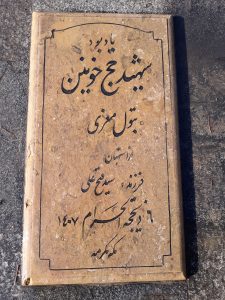 یادبود
شهید حج خونین
بتول معزی
از استهبان
فرزند: سید فتحعلی
۶ ذیحجة الحرام ۱۴۰۷
مکه مکرمه